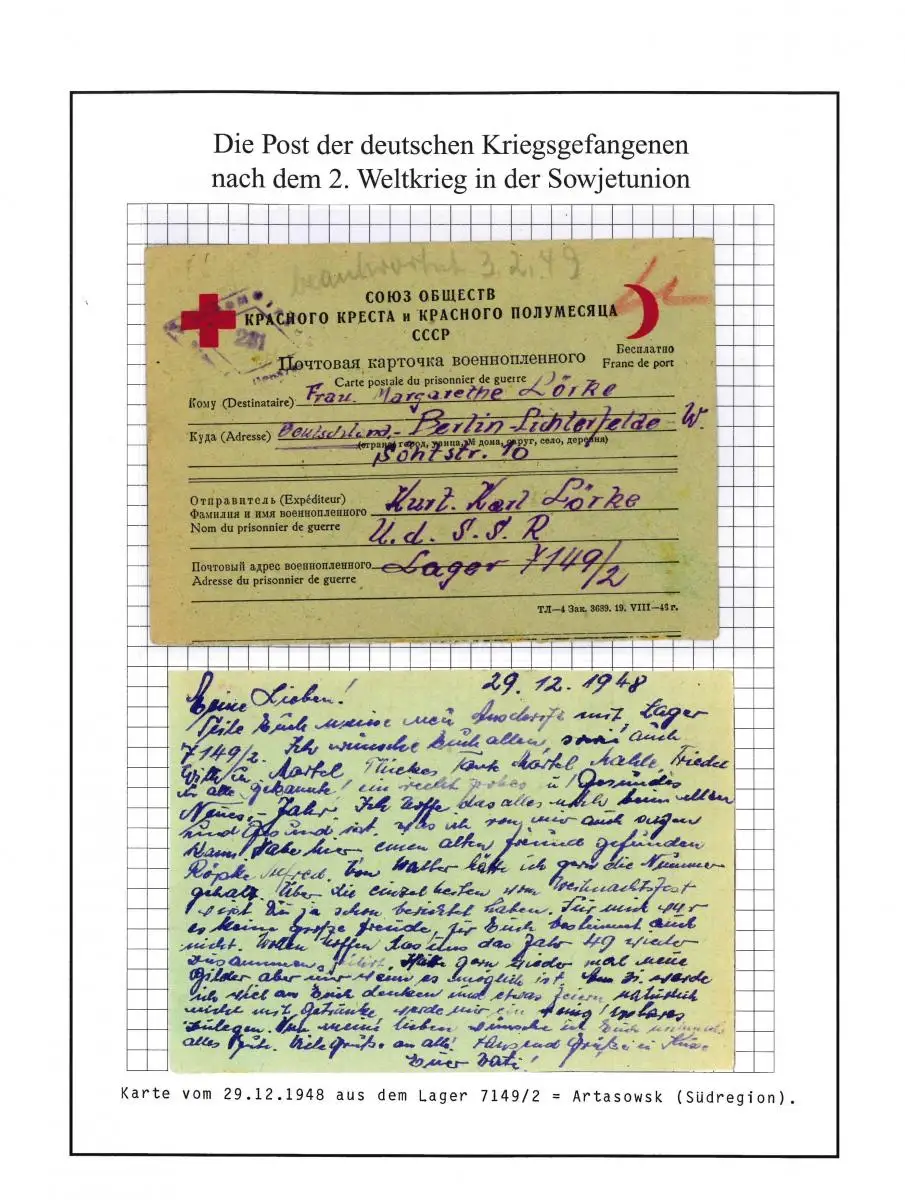 Die Post der deutschen Kriegsgefangenen
nach dem 2. Weltkrieg in der Sowjetunion
beantwortet 3.2.49
СОЮЗ ОБЩЕСТВ
КРАСНОГО КРЕСТА и КРАСНОГО ПОЛУМЕСЯЦА
СССР
Почтовая карточка военнопленного
Carte postale du prisonnier de guerre
Бесплатно
Franc de port
Кому (Destinataire) Frau. Margarethe Lörke
Куда (Adresse) Deutschland.- Berlin-Lichterfelde-W.
(страна, город, улица, № дома, округ, село, деревня)
10
Отправитель (Expéditeur)
Фамилия и имя военнопленного Kurt. Karl Lörke
Nom du prisonnier de guerre
U.d.S.S.R
Почтовый адрес военнопленного Lager 7149/2
Adresse du prisonnier de guerre
ТЛ—4 Зак. 3689. 19. VIII—46 г.
29.12.1948
Meine Lieben!
Teile Euch meine neue Anschrift mit, Lager
7149/2. Ich wünsche Euch allen, auch
Martel Martel Friedel
alle ein recht frohes u. Gesundes
Neues-Jahr. Ich hoffe das alles
und Gesund ist, was ich von mir auch sagen
kann. Habe hier einen alten Freund gefunden
Röpke Alfred. Von Walter hätte ich gern die Nummer
gehabt. Über die einzelheiten vom Weihnachtsfest
wirst Du ja schon berichtet haben. Für mich war
es keine große Freude, für Euch bestimmt auch
nicht. Wollen hoffen das uns das Jahr 49 wieder
zusammen führt. Hätte gern wieder mal neue
Bilder aber nur wenn es möglich ist. werde
ich viel an Euch denken und etwas feiern natürlich
nicht mit Getränke, werde mir ein
zulegen. Nun meine lieben wünsche ich Euch
alles Gute. Viele Grüße an alle! Tausend Grüße u. Küsse
Euer Vati!
Karte vom 29.12.1948 aus dem Lager 7149/2 = Artasowsk (Südregion).